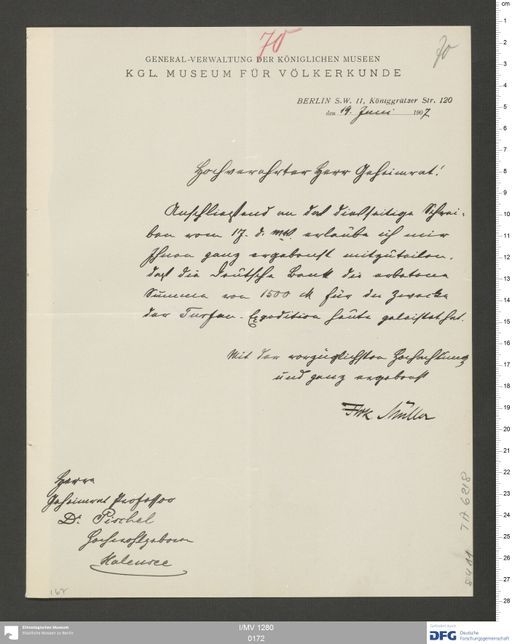 70
70
GENERAL-VERWALTUNG DER KÖNIGLICHEN MUSEEN
KGL. MUSEUM FÜR VÖLKERKUNDE
BERLIN S.W. 11, Königgrätzer Str. 120
den 19. Juni 1907.
Hochverehrter Herr Geheimrat!
Anschließend an das diesseitige Schrei-
ben vom 17. d. Mts erlaube ich mir
Ihnen ganz ergebenst mitzuteilen,
daß die Deutsche Bank die erbetene
Summe von 1500 M für die Zwecke
der Turfan-Expedition heute geleistet hat.
Mit der vorzüglichsten Hochachtung
und ganz ergebenst
FWK Müller
Herrn
Geheimrat Professor
Dr. Pischel
Hochwohlgeboren
Halensee
TA 6218
Ethnologisches Museum
Staatliche Museen zu Berlin
I/MV 1280
0172
DFG
Deutsche
Forschungsgemeinschaft
cm
1
2
3
4
5
6
7
8
9
10
11
12
13
14
15
16
17
18
19
20
21
22
23
24
25
26
27
28